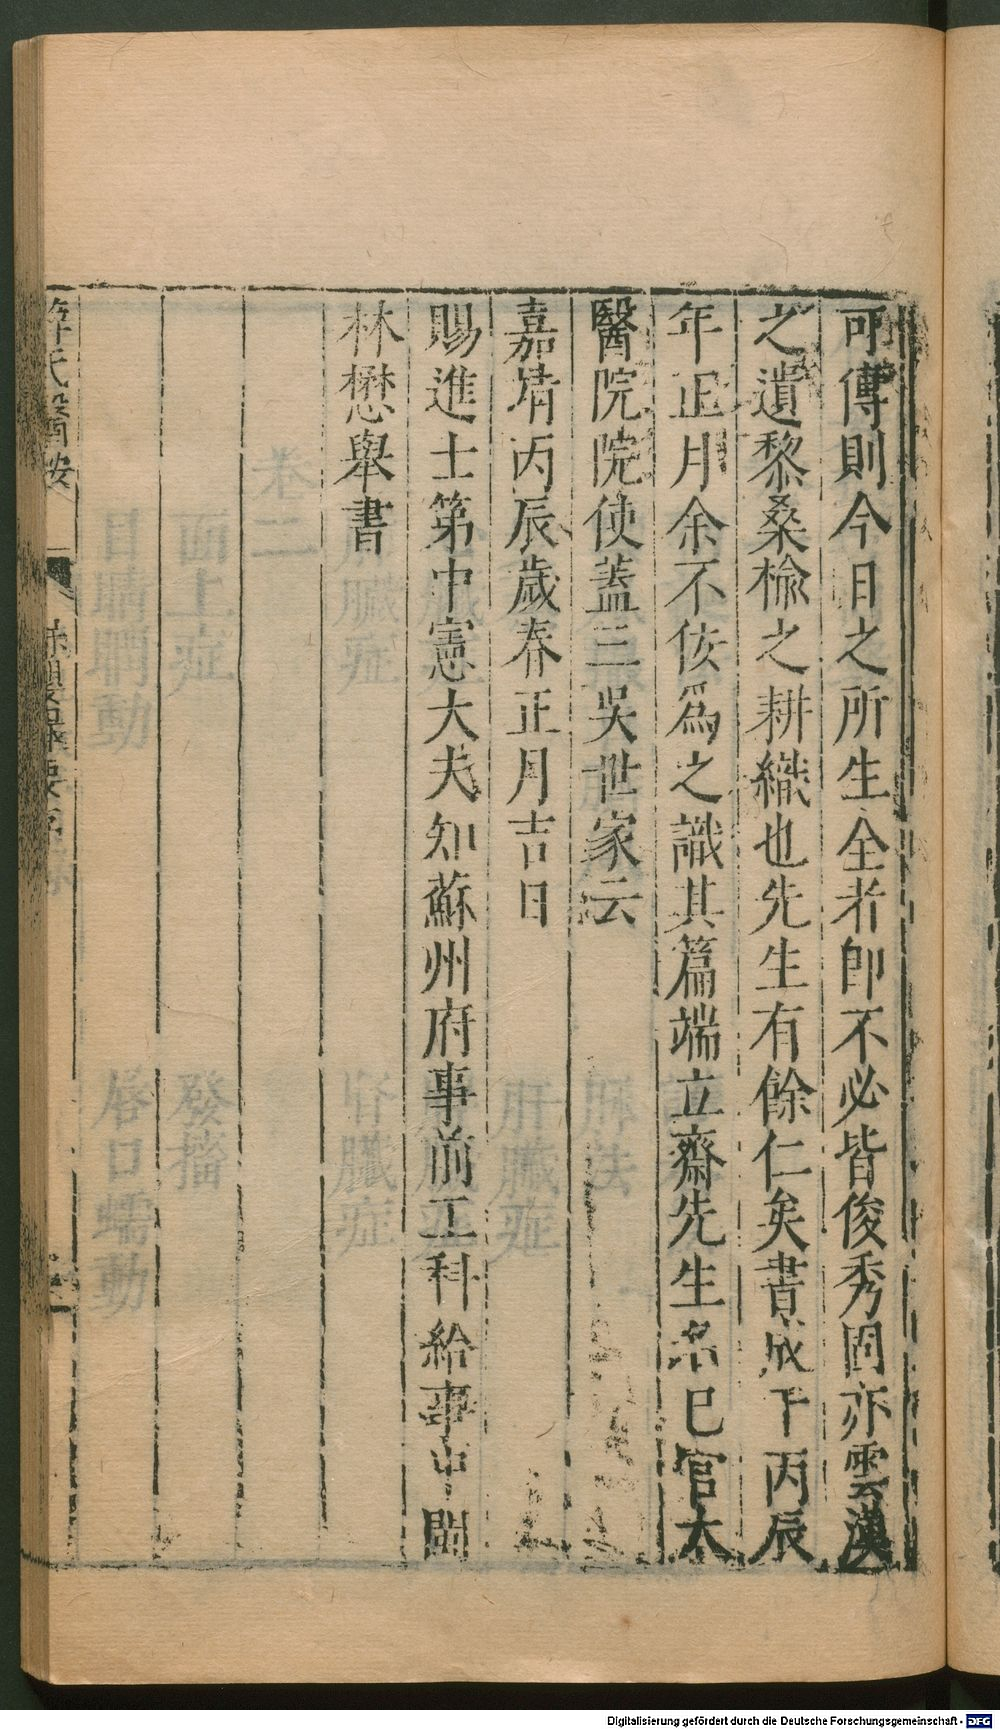 可傳則今日之所生全者卽不必皆俊秀固亦雲漢
之遺黎桑榆之耕織也先生有餘仁矣書成于丙辰
年正月余不佞爲之識其篇端立齋先生名巳官太
醫院院使蓋三吳世家云
嘉靖丙辰歲春正月吉日
賜進士第中憲大夫知蘇州府事前工科給事中閩
林懋舉書
薛氏醫按
Digitalisierung gefördert durch die Deutsche Forschungsgemeinschaft - DFG